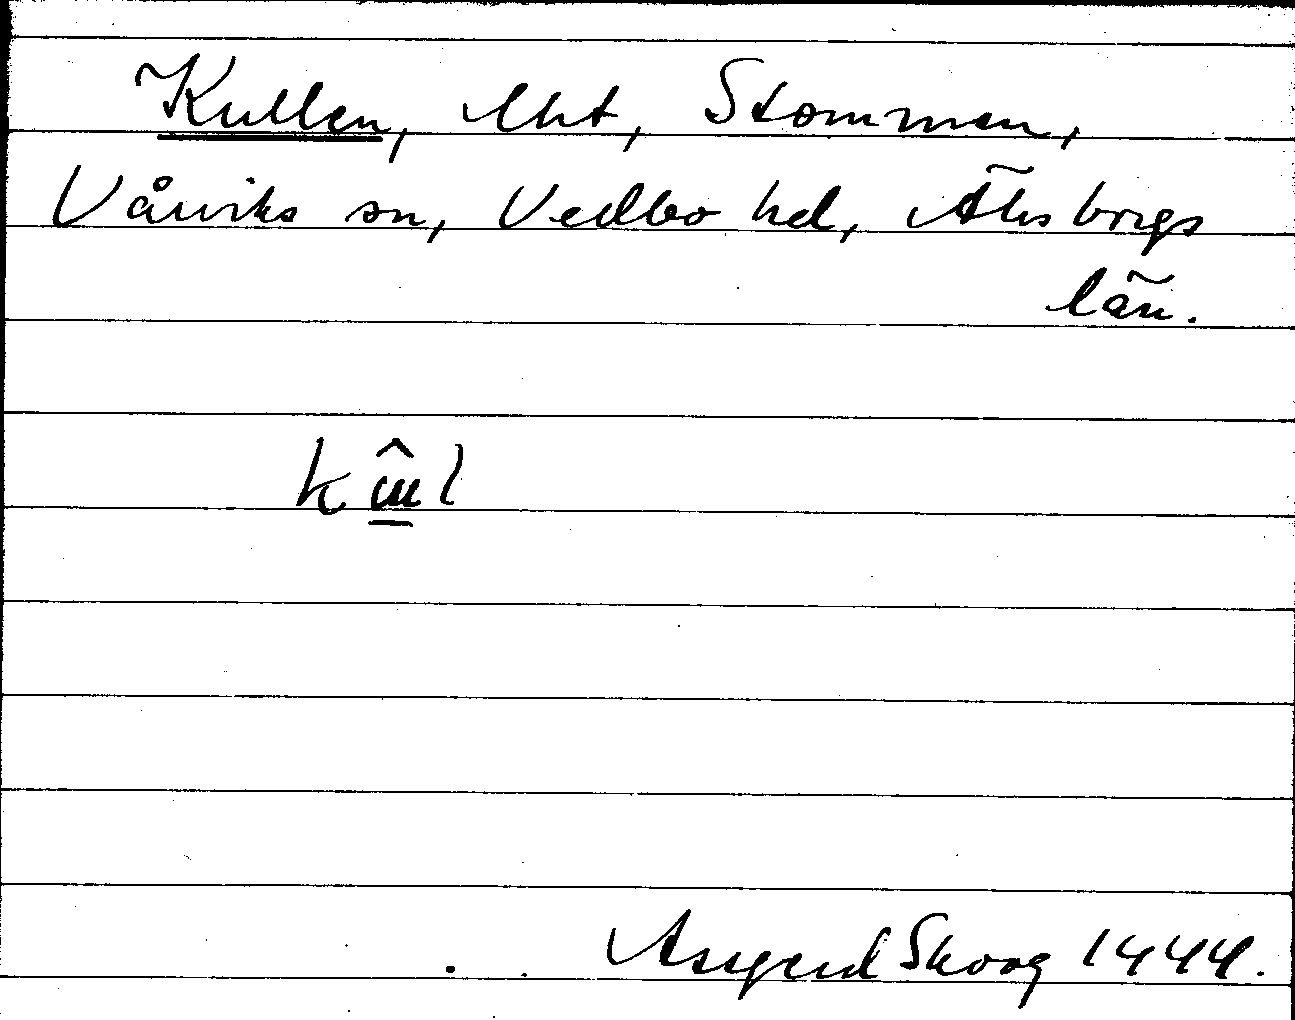 Kullen, lht, Stommen,
Vårviks sn, Vedbo hd, Älvsborgs
län.
Asgerd Skoog 1944.